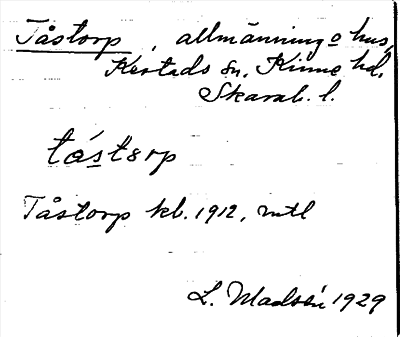 Tåstorp, allmänning o hus,
Kestads sn, Kinne hd.
Skarab. l.
tást8rp
Tåstorp kb. 1912, mtl
L. Madsén 1929